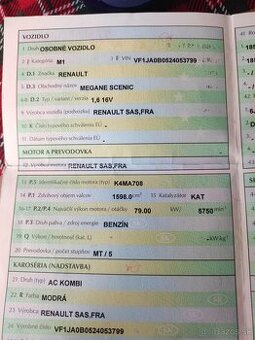 VOZIDLO
1 Druh OSOBNÉ VOZIDLO
2 J Kategória M1
3 E VIN VF1JA0B0524053799
4 D.1 Značka RENAULT
5 D.3 Obchodný názov MEGANE SCENIC
6-8 D.2 Typ / variant / verzia 1,6 16V
9 Výrobca vozidla (podvozku) RENAULT SAS,FRA
10 K Číslo typového schválenia EÚ
11 Dátum typového schválenia EÚ
MOTOR A PREVODOVKA
12 Výrobca motora RENAULT SAS,FRA
13 P.5 Identifikačné číslo motora (typ) K4MA708
14 P.1 Zdvihový objem valcov 1598.0 cm³
15 Katalyzátor KAT
16-17 P.2/P.4 Najväčší výkon motora / otáčky 79.00 kW/ 5750 min
18 P.3 Druh paliva / zdroj energie BENZÍN
19 Q Výkon / hmotnosť (kat. L) kW/kg
20 Prevodovka / počet stupňov MT / 5
KAROSÉRIA (NADSTAVBA)
21 Druh (typ) AC KOMBI
22 R Farba MODRÁ
23 Výrobca RENAULT SAS,FRA
24 Výrobné číslo VF1JA0B0524053799